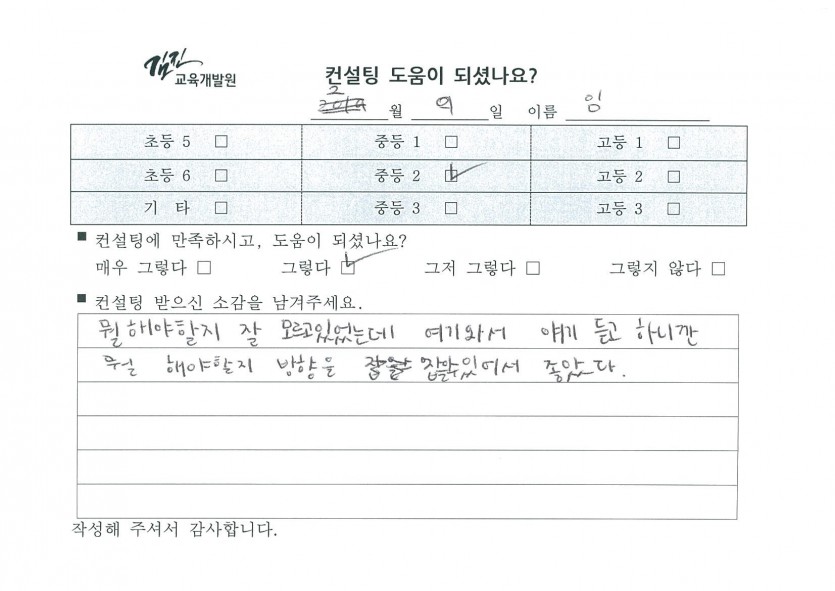 김진
교육개발원
컨설팅 도움이 되셨나요?
월 일 이름 임
초등 5 □ 중등 1 □ 고등 1 □
초등 6 □ 중등 2 ☑ 고등 2 □
기 타 □ 중등 3 □ 고등 3 □
■ 컨설팅에 만족하시고, 도움이 되셨나요?
매우 그렇다 □ 그렇다 ☑ 그저 그렇다 □ 그렇지 않다 □
■ 컨설팅 받으신 소감을 남겨주세요.
뭘 해야할지 잘 모르고있었는데 여기와서 얘기 듣고 하니깐
뭐를 해야할지 방향을 잡을수있어서 좋았다.
작성해 주셔서 감사합니다.